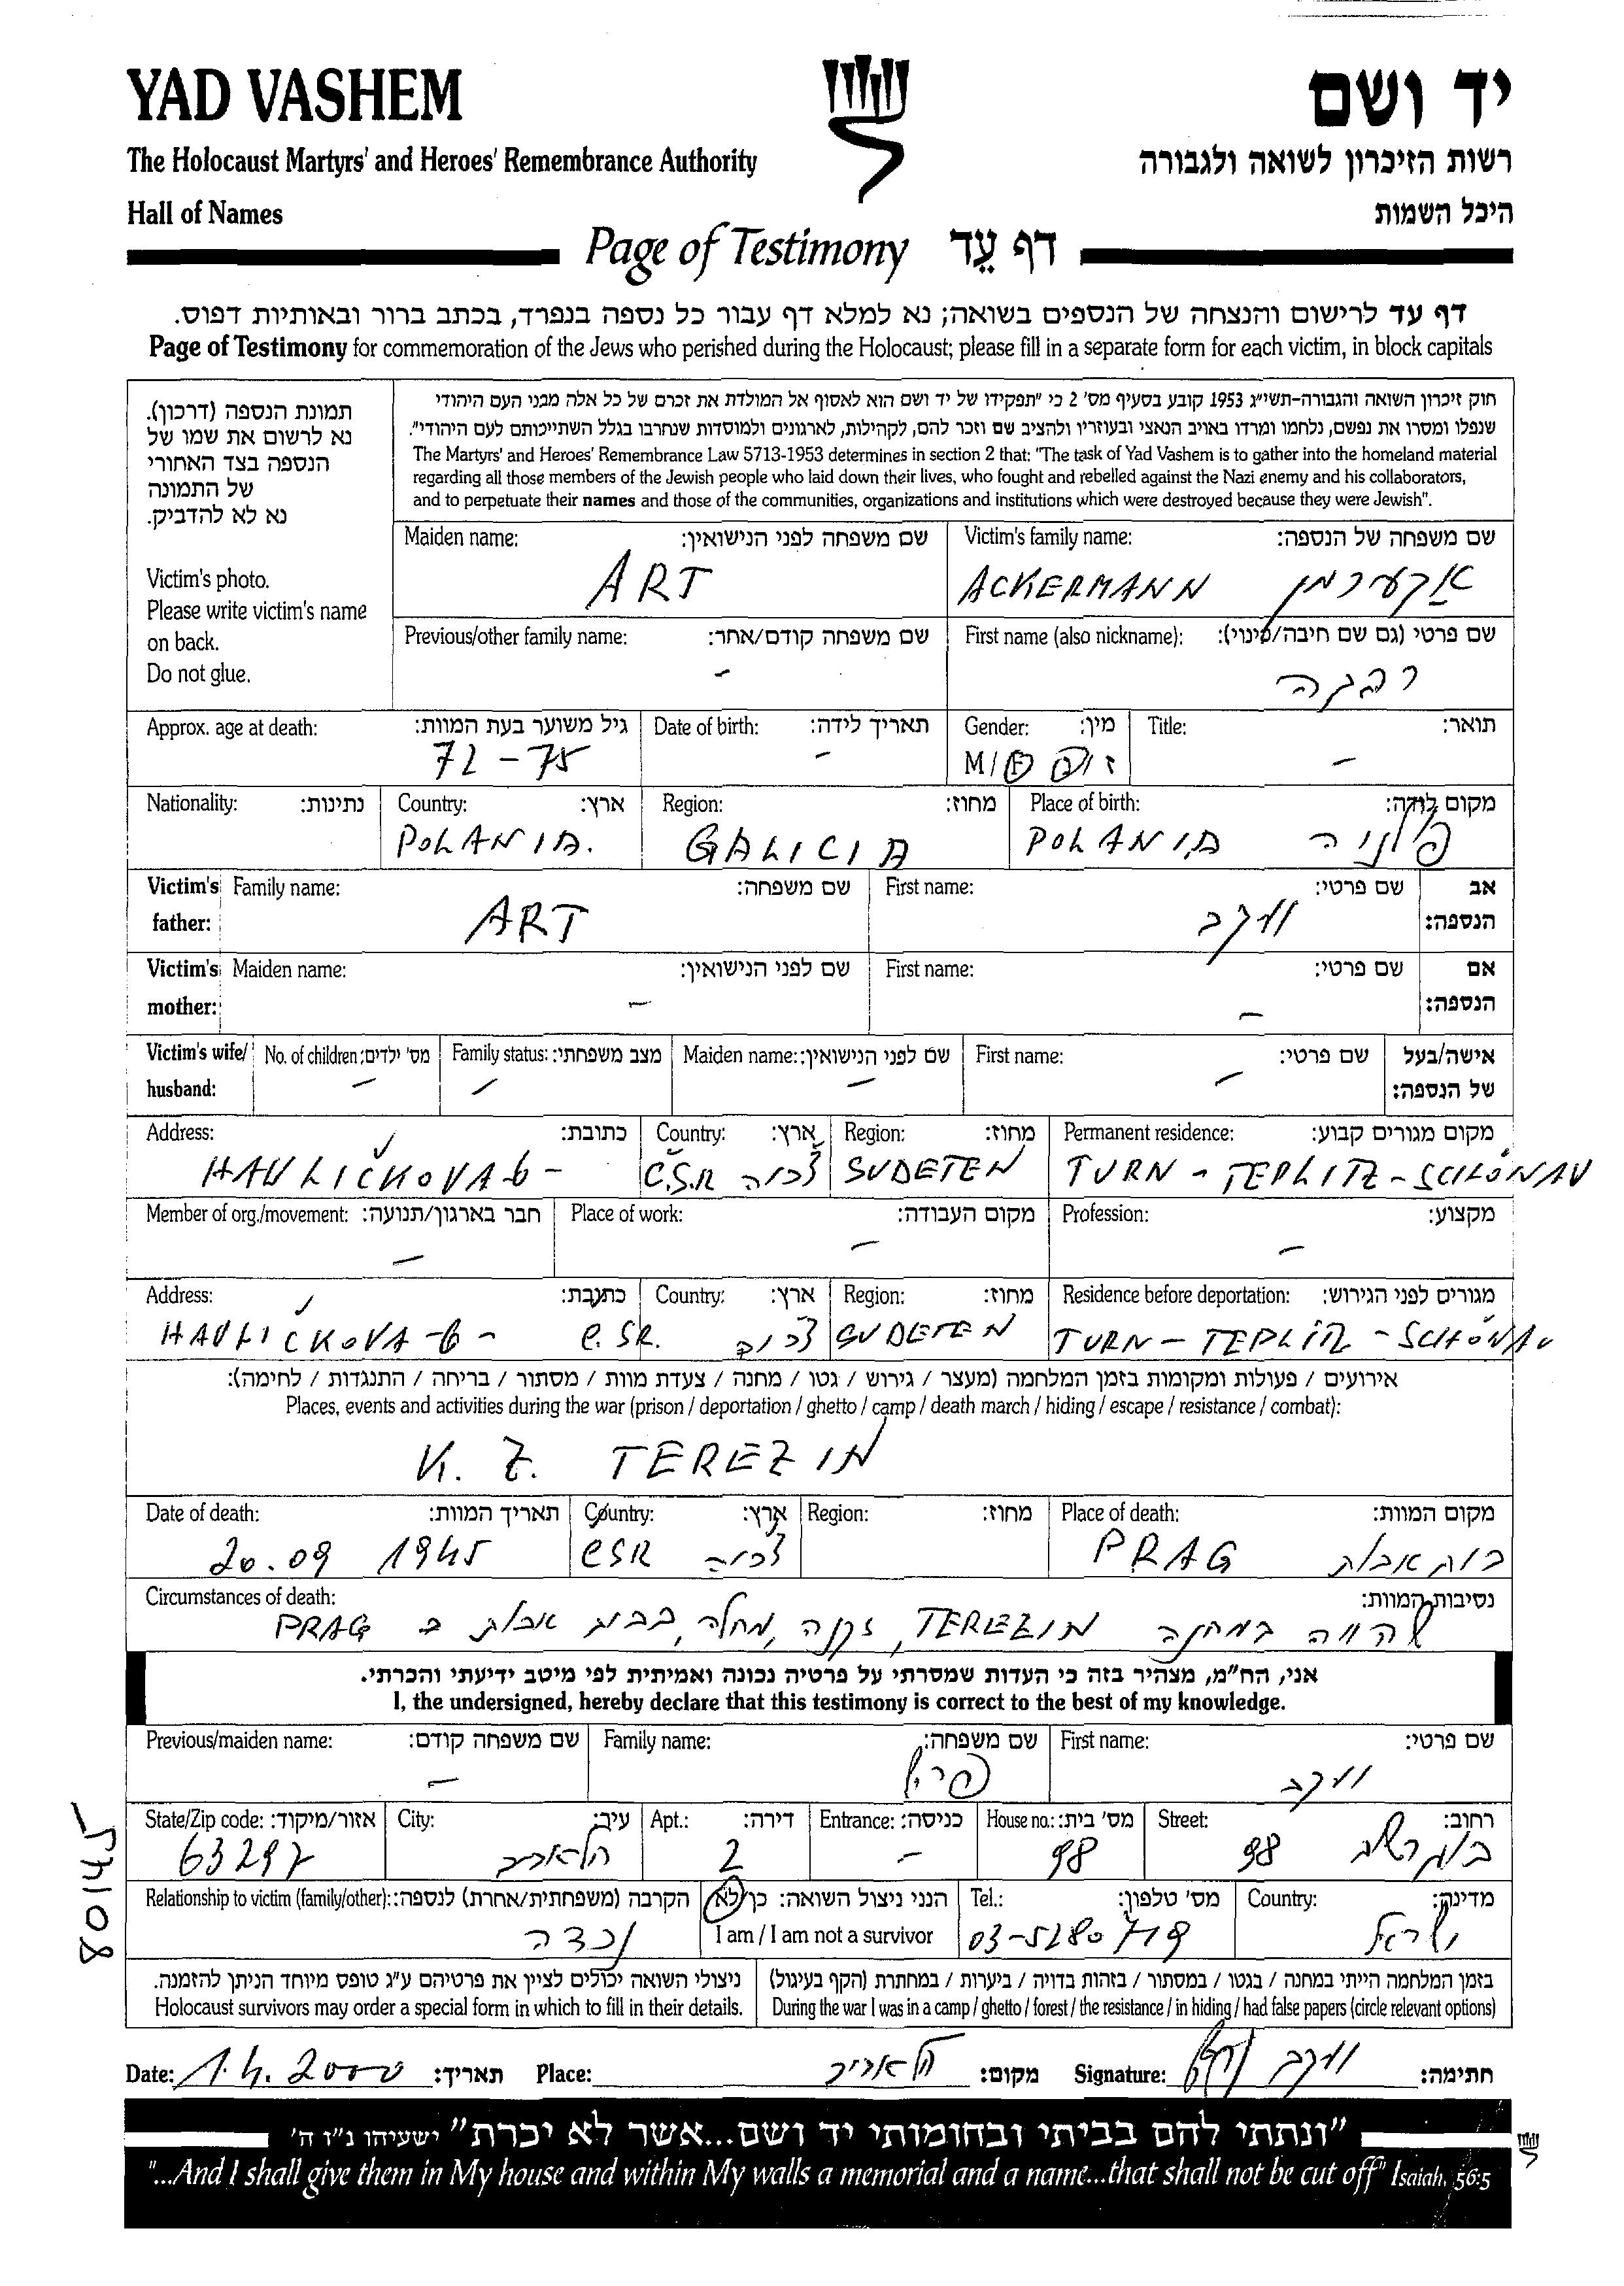 YAD VASHEM
יד ושם
The Holocaust Martyrs' and Heroes' Remembrance Authority
רשות הזיכרון לשואה ולגבורה
Hall of Names
היכל השמות
Page of Testimony דף עֵד
דף עד לרישום והנצחה של הנספים בשואה; נא למלא דף עבור כל נספה בנפרד, בכתב ברור ובאותיות דפוס.
Page of Testimony for commemoration of the Jews who perished during the Holocaust; please fill in a separate form for each victim, in block capitals
תמונת הנספה (דרכון).
נא לרשום את שמו של
הנספה בצד האחורי
של התמונה
נא לא להדביק.
Victim's photo.
Please write victim's name
on back.
Do not glue.
חוק זיכרון השואה והגבורה-תשי"ג 1953 קובע בסעיף מס' 2 כי "תפקידו של יד ושם הוא לאסוף אל המולדת את זכרם של כל אלה מבני העם היהודי
שנפלו ומסרו את נפשם, נלחמו ומרדו באויב הנאצי ובעוזריו ולהציב שם וזכר להם, לקהילות, לארגונים ולמוסדות שנחרבו בגלל השתייכותם לעם היהודי".
The Martyrs' and Heroes' Remembrance Law 5713-1953 determines in section 2 that: "The task of Yad Vashem is to gather into the homeland material
regarding all those members of the Jewish people who laid down their lives, who fought and rebelled against the Nazi enemy and his collaborators,
and to perpetuate their names and those of the communities, organizations and institutions which were destroyed because they were Jewish".
Maiden name: שם משפחה לפני הנישואין: Victim's family name: שם משפחה של הנספה:
ART ACKERMANN אקערמן
Previous/other family name: שם משפחה קודם/אחר: First name (also nickname): שם פרטי (גם שם חיבה/כינוי):
- רבקה
Approx. age at death: גיל משוער בעת המוות: Date of birth: תאריך לידה: Gender: מין: Title: תואר:
72 - 75 - M/F ז/נ -
Nationality: נתינות: Country: ארץ: Region: מחוז: Place of birth: מקום לידה:
POLANIA. GALICIA POLANIA פולניה
Victim's father: Family name: שם משפחה: First name: שם פרטי: אב הנספה:
ART יעקב
Victim's mother: Maiden name: שם לפני הנישואין: First name: שם פרטי: אם הנספה:
- -
Victim's wife/ husband: No. of children: מס' ילדים: Family status: מצב משפחתי: Maiden name: שם לפני הנישואין: First name: שם פרטי: אישה/בעל של הנספה:
- - - -
Address: כתובת: Country: ארץ: Region: מחוז: Permanent residence: מקום מגורים קבוע:
HAVLIČKOVA 6 - Č.S.R צ'כיה SUDETEN TURN - TEPLITZ - SCHÖNAU
Member of org./movement: חבר בארגון/תנועה: Place of work: מקום העבודה: Profession: מקצוע:
- - -
Address: כתובת: Country: ארץ: Region: מחוז: Residence before deportation: מגורים לפני הגירוש:
HAVLIČKOVA -6 - C.SR. צ'כיה SUDETEN TURN - TEPLITZ - SCHÖNAU
אירועים / פעולות ומקומות בזמן המלחמה (מעצר / גירוש / גטו / מחנה / צעדת מוות / מסתור / בריחה / התנגדות / לחימה):
Places, events and activities during the war (prison / deportation / ghetto / camp / death march / hiding / escape / resistance / combat):
K. Z. TEREZIN
Date of death: תאריך המוות: Country: ארץ: Region: מחוז: Place of death: מקום המוות:
20.09 1945 CSR צ'כיה PRAG בית אבות
Circumstances of death: נסיבות המוות:
שהייה במחנה TEREZIN, זקנה, מחלה, בבית אבות ב PRAG
אני, הח"מ, מצהיר בזה כי העדות שמסרתי על פרטיה נכונה ואמיתית לפי מיטב ידיעתי והכרתי.
I, the undersigned, hereby declare that this testimony is correct to the best of my knowledge.
Previous/maiden name: שם משפחה קודם: Family name: שם משפחה: First name: שם פרטי:
- יעקב
State/Zip code: אזור/מיקוד: City: עיר: Apt.: דירה: Entrance: כניסה: House no.: מס' בית: Street: רחוב:
63297 תל אביב 2 - 98 בוגרשוב 98
Relationship to victim (family/other): הקרבה (משפחתית/אחרת) לנספה: הנני ניצול השואה: כן/לא Tel.: מס' טלפון: Country: מדינה:
נכדה I am / I am not a survivor 03-5280719 ישראל
ניצולי השואה יכולים לציין את פרטיהם ע"ג טופס מיוחד הניתן להזמנה.
Holocaust survivors may order a special form in which to fill in their details.
בזמן המלחמה הייתי במחנה / בגטו / במסתור / בזהות בדויה / ביערות / במחתרת (הקף בעיגול)
During the war I was in a camp / ghetto / forest / the resistance / in hiding / had false papers (circle relevant options)
Date: 1.4.2000 תאריך: Place: תל אביב מקום: Signature: יעקב חתימה:
80145
"ונתתי להם בביתי ובחומותי יד ושם...אשר לא יכרת" ישעיהו נ"ו ה'
"...And I shall give them in My house and within My walls a memorial and a name...that shall not be cut off" Isaiah, 56:5